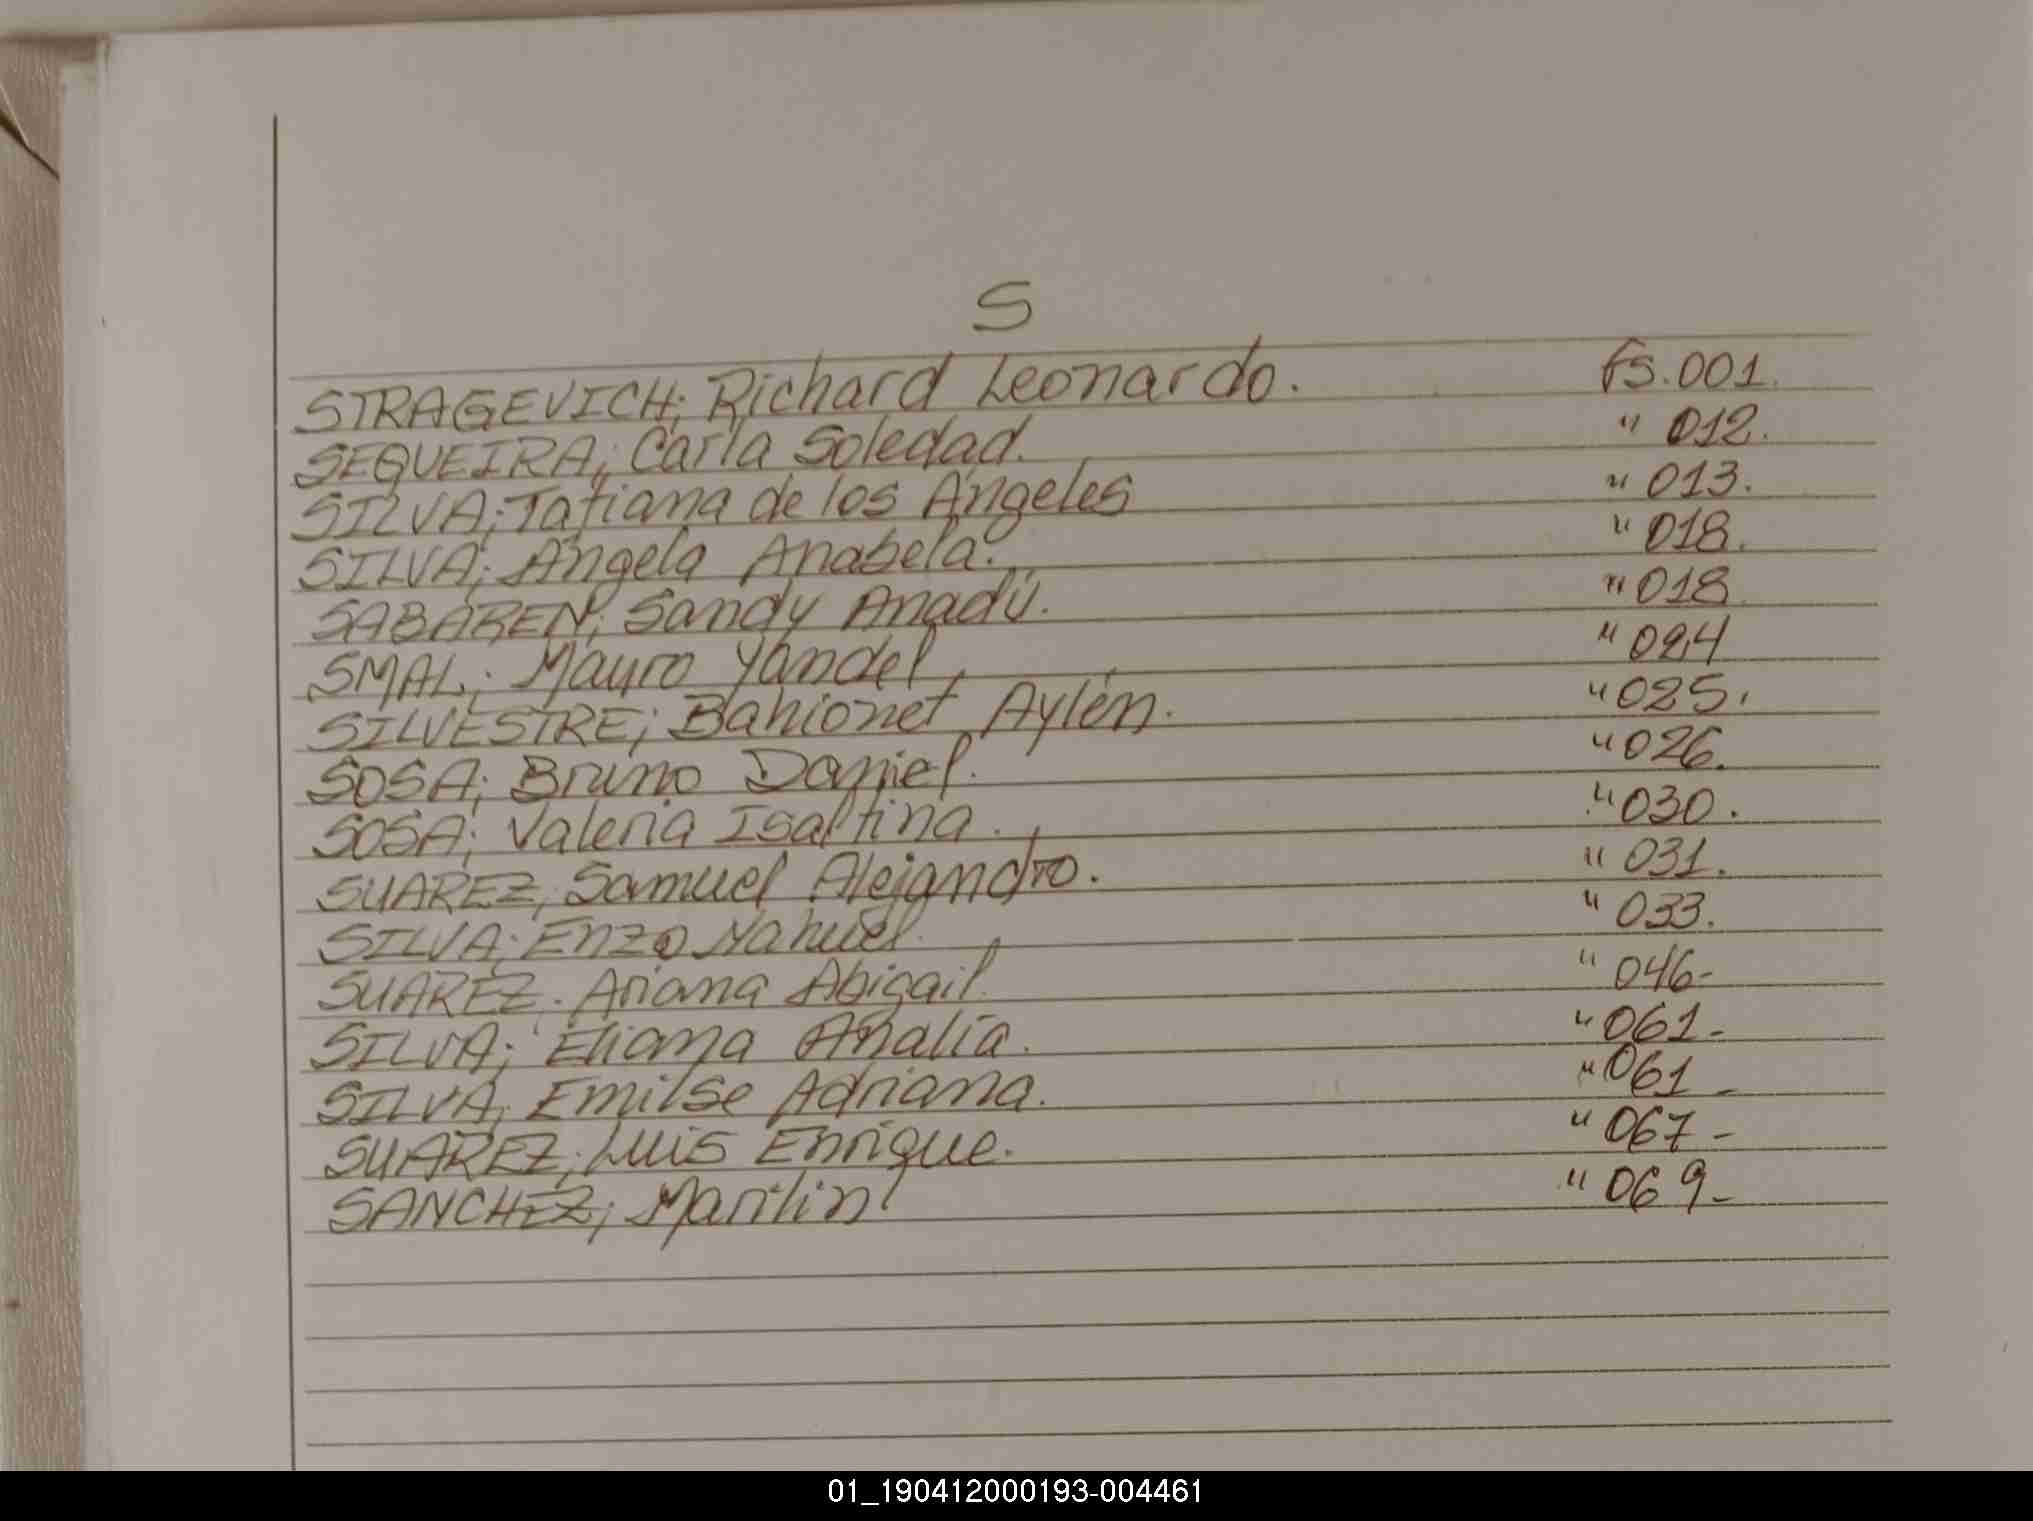 S
STRAGEVICH; Richard Leonardo. Fs. 001.
SEQUEIRA; Carla Soledad. " 012.
SILVA; Tatiana de los Ángeles " 013.
SILVA; Ángela Anabela. " 018.
SABAREN; Sandy Anadú. " 018
SMAL; Mauro Yandel " 024
SILVESTRE; Bahionet Aylén. " 025.
SOSA; Bruno Daniel. " 026.
SOSA; Valeria Isaltina. " 030.
SUAREZ; Samuel Alejandro. " 031.
SILVA; Enzo Nahuel. " 033.
SUAREZ; Ariana Abigail. " 046-
SILVA; Eliana Analía. " 061-
SILVA; Emilse Adriana. " 061-
SUAREZ; Luis Enrique. " 067-
SANCHEZ; Marilin " 069-
01_190412000193-004461